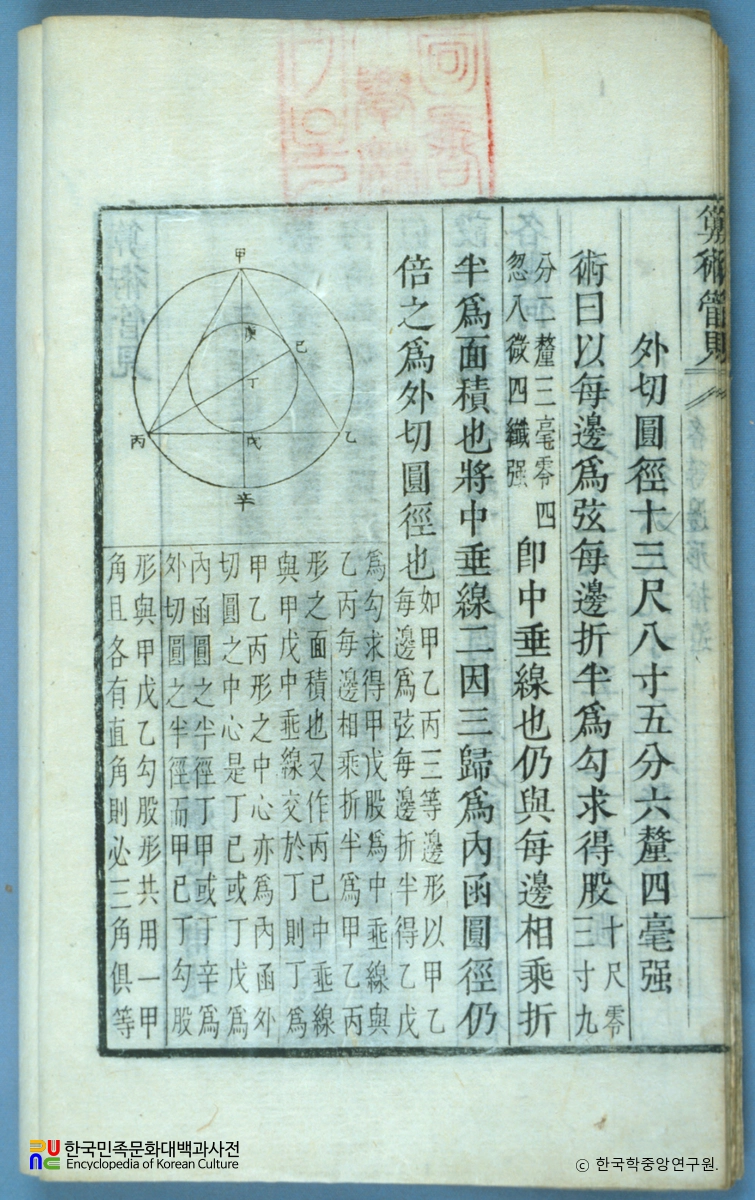 算術管見
外切圓徑十三尺八寸五分六釐四毫强
術曰以每邊爲弦每邊折半爲勾求得股
十尺零
三寸九
分二釐三毫零四
忽八微四纖强
卽中垂線也仍與每邊相乘折
半爲面積也將中垂線二因三歸爲內函圓徑仍
倍之爲外切圓徑也
如甲乙丙三等邊形以甲乙
每邊爲弦每邊折半得乙戊
爲勾求得甲戊股爲中垂線與
乙丙每邊相乘折半爲甲乙丙
形之面積也又作丙己中垂線
與甲戊中垂線交於丁則丁爲
甲乙丙形之中心亦爲內函外
切圓之中心是丁己或丁戊爲
內函圓之半徑丁甲或丁辛爲
外切圓之半徑而甲己丁勾股
形與甲戊乙勾股形共用一甲
角且各有直角則必三角俱等
甲
庚
己
丁
丙
戊
乙
辛
한국민족문화대백과사전
Encyclopedia of Korean Culture
© 한국학중앙연구원.